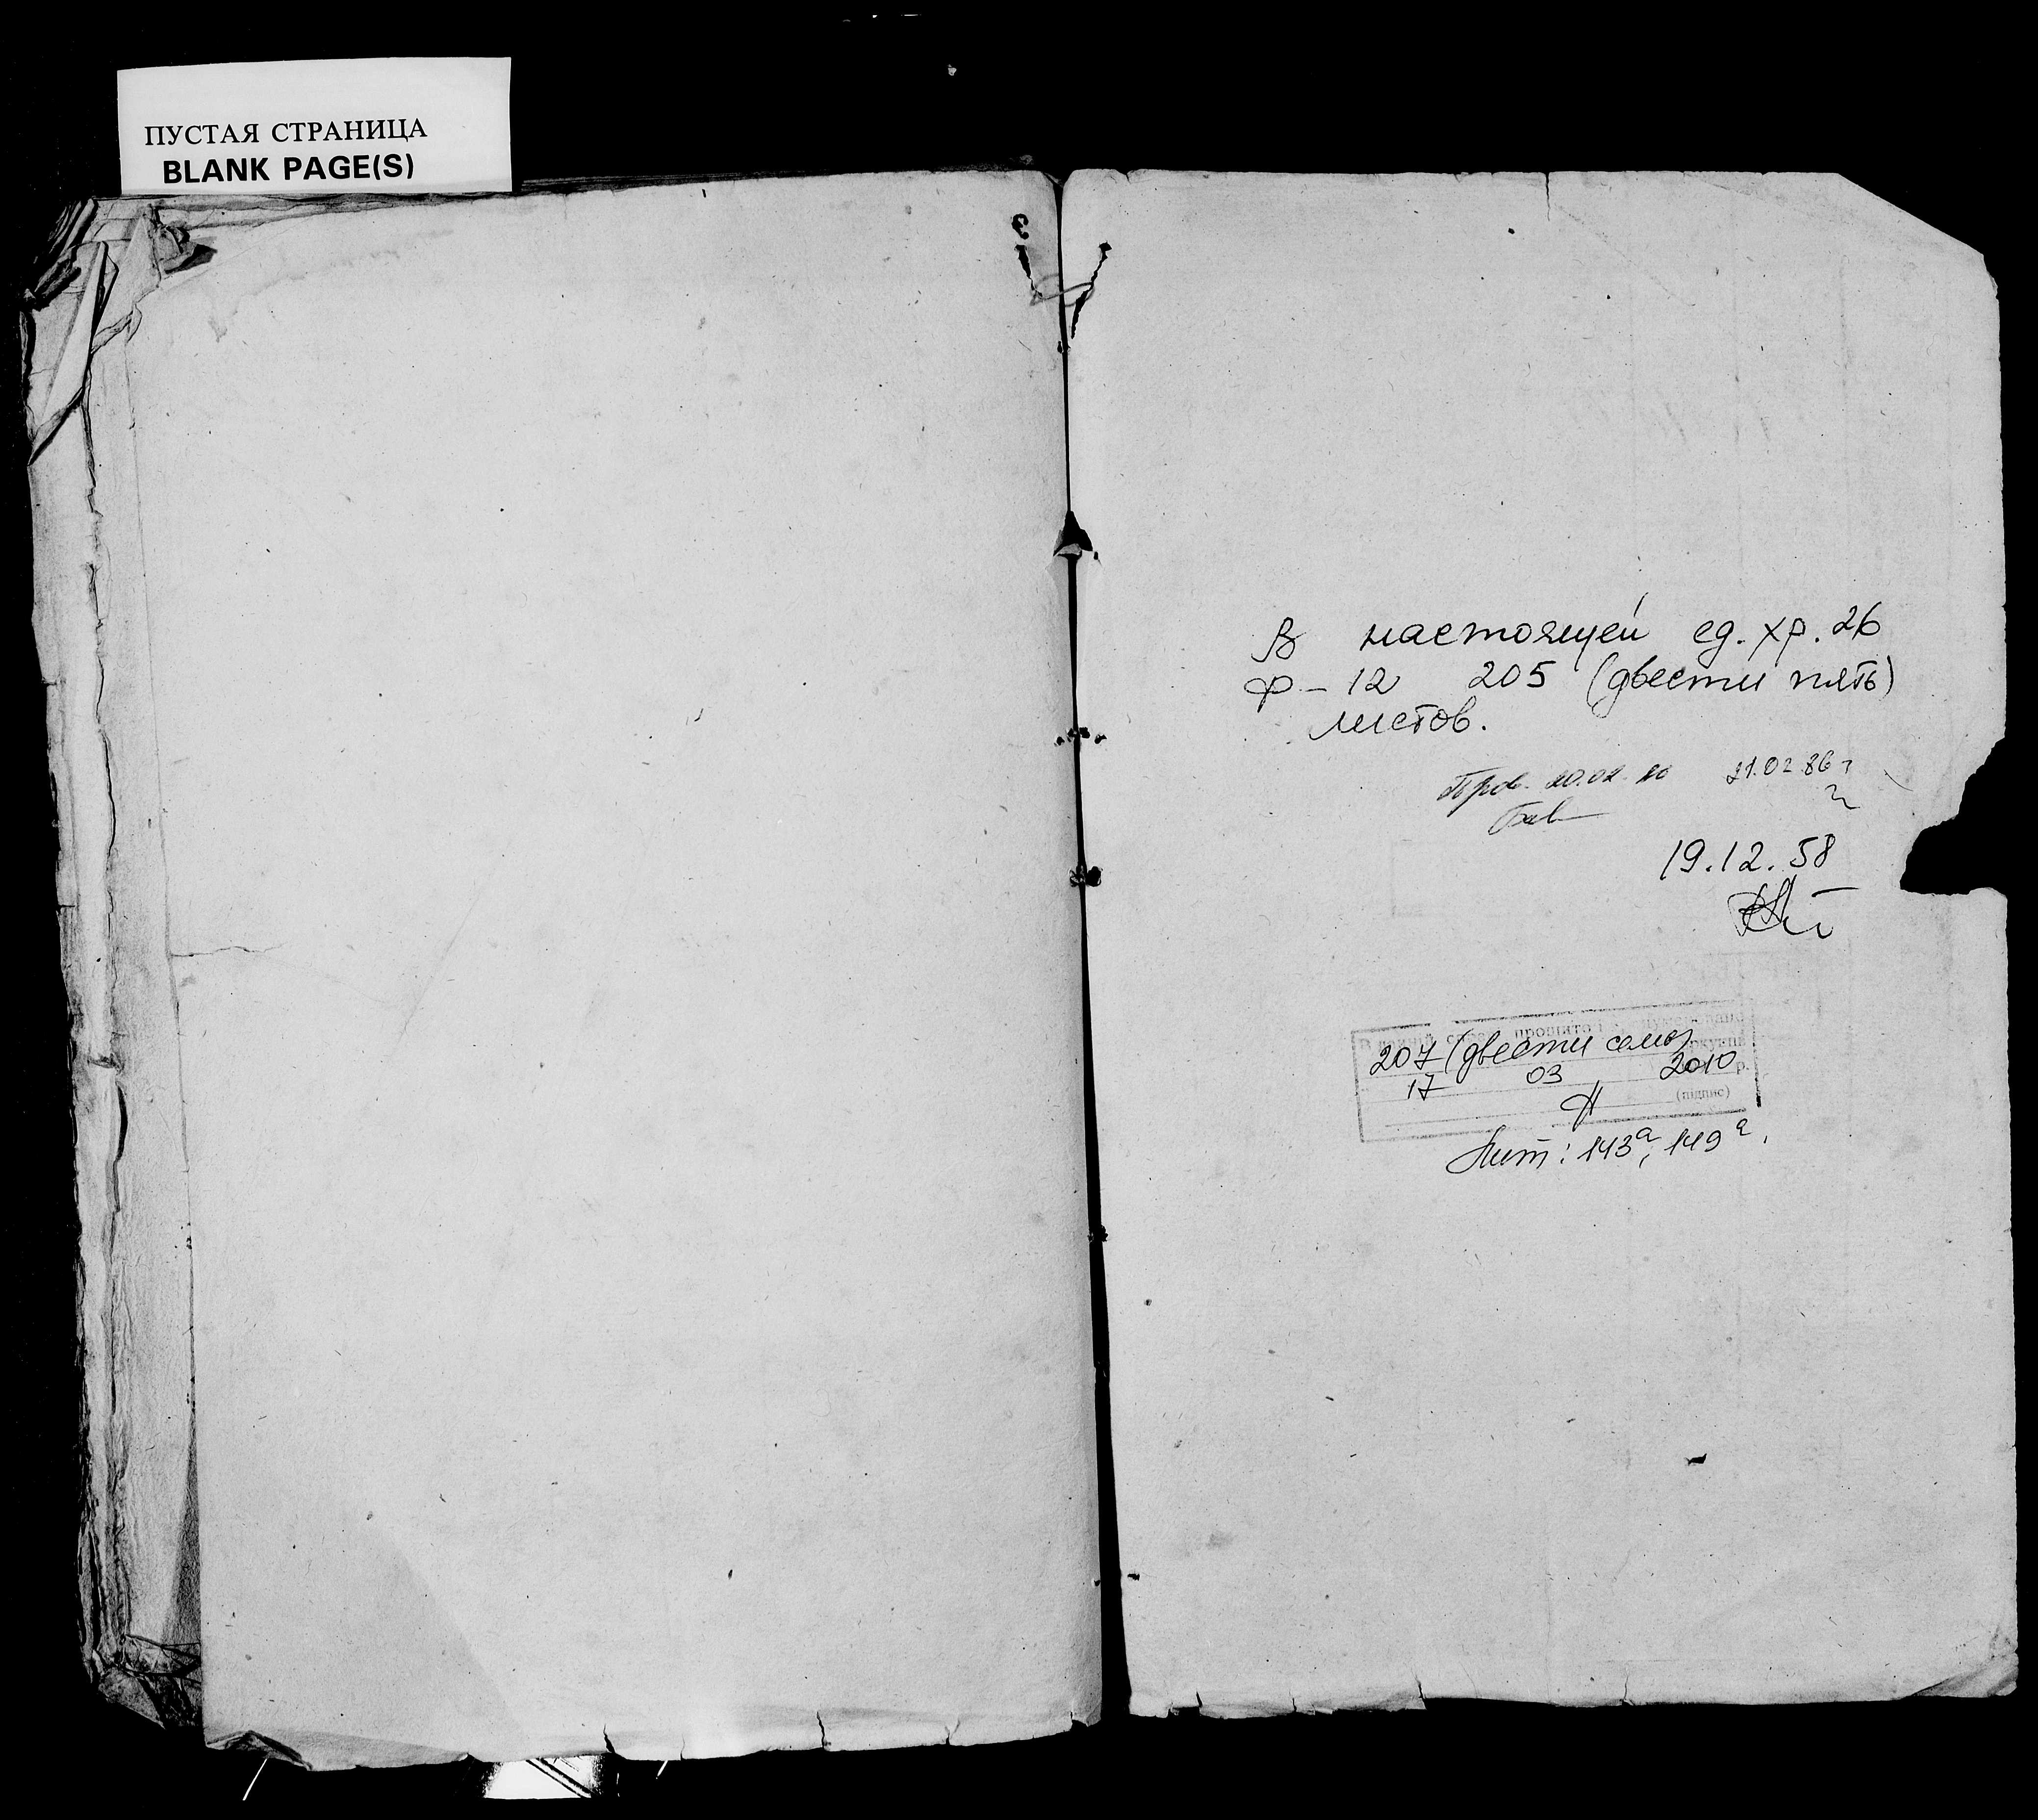 ПУСТАЯ СТРАНИЦА
BLANK PAGE(S)
В настоящей ед. хр. 26
ф-12 205 (двести пять)
листов.
Пров. 20.02.86 21.02.86 г
19.12.58
прошито і
207 (двести семь)
17 03 2010 р.
(підпис)
Лит: 143а, 149а.